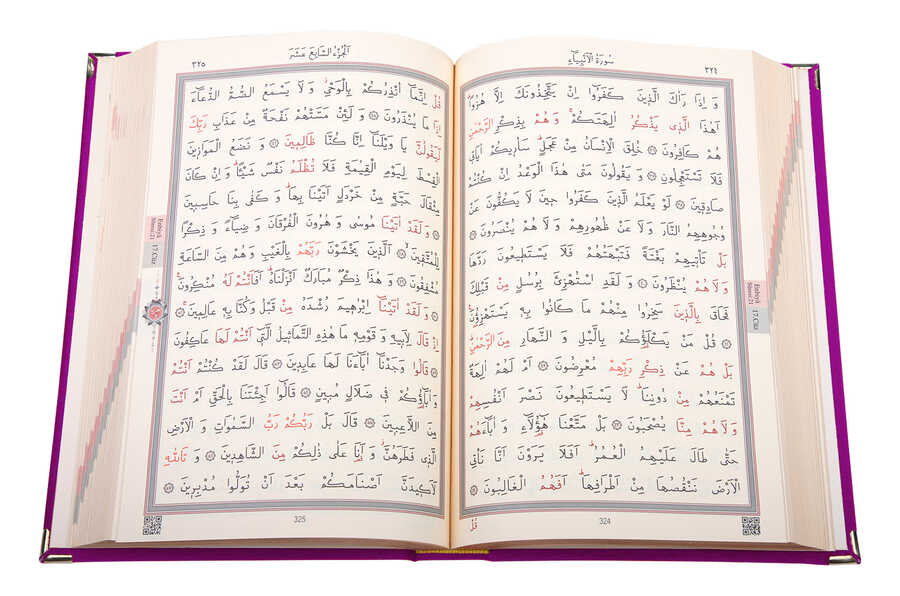 سُورَةُ الْاَنْبِيَاءِ
٣٢٤
وَ اِذَا رَاٰكَ الَّذِينَ كَفَرُوا اِنْ يَتَّخِذُونَكَ اِلَّا هُزُوًا
اَهٰذَا الَّذِى يَذْكُرُ اٰلِهَتَكُمْ وَ هُمْ بِذِكْرِ الرَّحْمٰنِ
هُمْ كَافِرُونَ ۝ خُلِقَ الْاِنْسَانُ مِنْ عَجَلٍ سَاُرِيكُمْ اٰيَاتِى
فَلَا تَسْتَعْجِلُونِ ۝ وَ يَقُولُونَ مَتٰى هٰذَا الْوَعْدُ اِنْ كُنْتُمْ
صَادِقِينَ ۝ لَوْ يَعْلَمُ الَّذِينَ كَفَرُوا حِينَ لَا يَكُفُّونَ عَنْ
وُجُوهِهِمُ النَّارَ وَ لَا عَنْ ظُهُورِهِمْ وَ لَا هُمْ يُنْصَرُونَ ۝
بَلْ تَاْتِيهِمْ بَغْتَةً فَتَبْهَتُهُمْ فَلَا يَسْتَطِيعُونَ رَدَّهَا
وَ لَا هُمْ يُنْظَرُونَ ۝ وَ لَقَدِ اسْتُهْزِئَ بِرُسُلٍ مِنْ قَبْلِكَ
فَحَاقَ بِالَّذِينَ سَخِرُوا مِنْهُمْ مَا كَانُوا بِهِ يَسْتَهْزِؤُنَ
۝ قُلْ مَنْ يَكْلَؤُكُمْ بِالَّيْلِ وَ النَّهَارِ مِنَ الرَّحْمٰنِ
بَلْ هُمْ عَنْ ذِكْرِ رَبِّهِمْ مُعْرِضُونَ ۝ اَمْ لَهُمْ اٰلِهَةٌ
تَمْنَعُهُمْ مِنْ دُونِنَا لَا يَسْتَطِيعُونَ نَصْرَ اَنْفُسِهِمْ
وَ لَا هُمْ مِنَّا يُصْحَبُونَ ۝ بَلْ مَتَّعْنَا هٰؤُلَاءِ وَ اٰبَاءَهُمْ
حَتّٰى طَالَ عَلَيْهِمُ الْعُمُرُ اَفَلَا يَرَوْنَ اَنَّا نَاْتِى
الْاَرْضَ نَنْقُصُهَا مِنْ اَطْرَافِهَا اَفَهُمُ الْغَالِبُونَ ۝
قُلْ
324
Enbiyâ
Sûresi:21
17.Cüz
اَلْجُزْءُ السَّابِعَ عَشَرَ
٣٢٥
قُلْ اِنَّمَا اُنْذِرُكُمْ بِالْوَحْىِ وَ لَا يَسْمَعُ الصُّمُّ الدُّعَاءَ
اِذَا مَا يُنْذَرُونَ ۝ وَ لَئِنْ مَسَّتْهُمْ نَفْحَةٌ مِنْ عَذَابِ رَبِّكَ
لَيَقُولُنَّ يَا وَيْلَنَا اِنَّا كُنَّا ظَالِمِينَ ۝ وَ نَضَعُ الْمَوَازِينَ
الْقِسْطَ لِيَوْمِ الْقِيٰمَةِ فَلَا تُظْلَمُ نَفْسٌ شَيْئًا وَ اِنْ كَانَ
مِثْقَالَ حَبَّةٍ مِنْ خَرْدَلٍ اَتَيْنَا بِهَا وَ كَفٰى بِنَا حَاسِبِينَ
۝ وَ لَقَدْ اٰتَيْنَا مُوسٰى وَ هٰرُونَ الْفُرْقَانَ وَ ضِيَاءً وَ ذِكْرًا
لِلْمُتَّقِينَ ۝ اَلَّذِينَ يَخْشَوْنَ رَبَّهُمْ بِالْغَيْبِ وَ هُمْ مِنَ السَّاعَةِ
مُشْفِقُونَ ۝ وَ هٰذَا ذِكْرٌ مُبَارَكٌ اَنْزَلْنَاهُ اَفَاَنْتُمْ لَهُ مُنْكِرُونَ
۝ وَ لَقَدْ اٰتَيْنَا اِبْرٰهِيمَ رُشْدَهُ مِنْ قَبْلُ وَ كُنَّا بِهِ عَالِمِينَ ۝
اِذْ قَالَ لِاَبِيهِ وَ قَوْمِهِ مَا هٰذِهِ التَّمَاثِيلُ الَّتِى اَنْتُمْ لَهَا عَاكِفُونَ
۝ قَالُوا وَجَدْنَا اٰبَاءَنَا لَهَا عَابِدِينَ ۝ قَالَ لَقَدْ كُنْتُمْ اَنْتُمْ
وَ اٰبَاؤُكُمْ فِى ضَلَالٍ مُبِينٍ ۝ قَالُوا اَجِئْتَنَا بِالْحَقِّ اَمْ اَنْتَ
مِنَ اللَّاعِبِينَ ۝ قَالَ بَلْ رَبُّكُمْ رَبُّ السَّمٰوَاتِ وَ الْاَرْضِ
الَّذِى فَطَرَهُنَّ وَ اَنَا عَلٰى ذٰلِكُمْ مِنَ الشَّاهِدِينَ ۝ وَ تَاللّٰهِ
لَاَكِيدَنَّ اَصْنَامَكُمْ بَعْدَ اَنْ تُوَلُّوا مُدْبِرِينَ ۝
325
Enbiyâ
Sûresi:21
17.Cüz